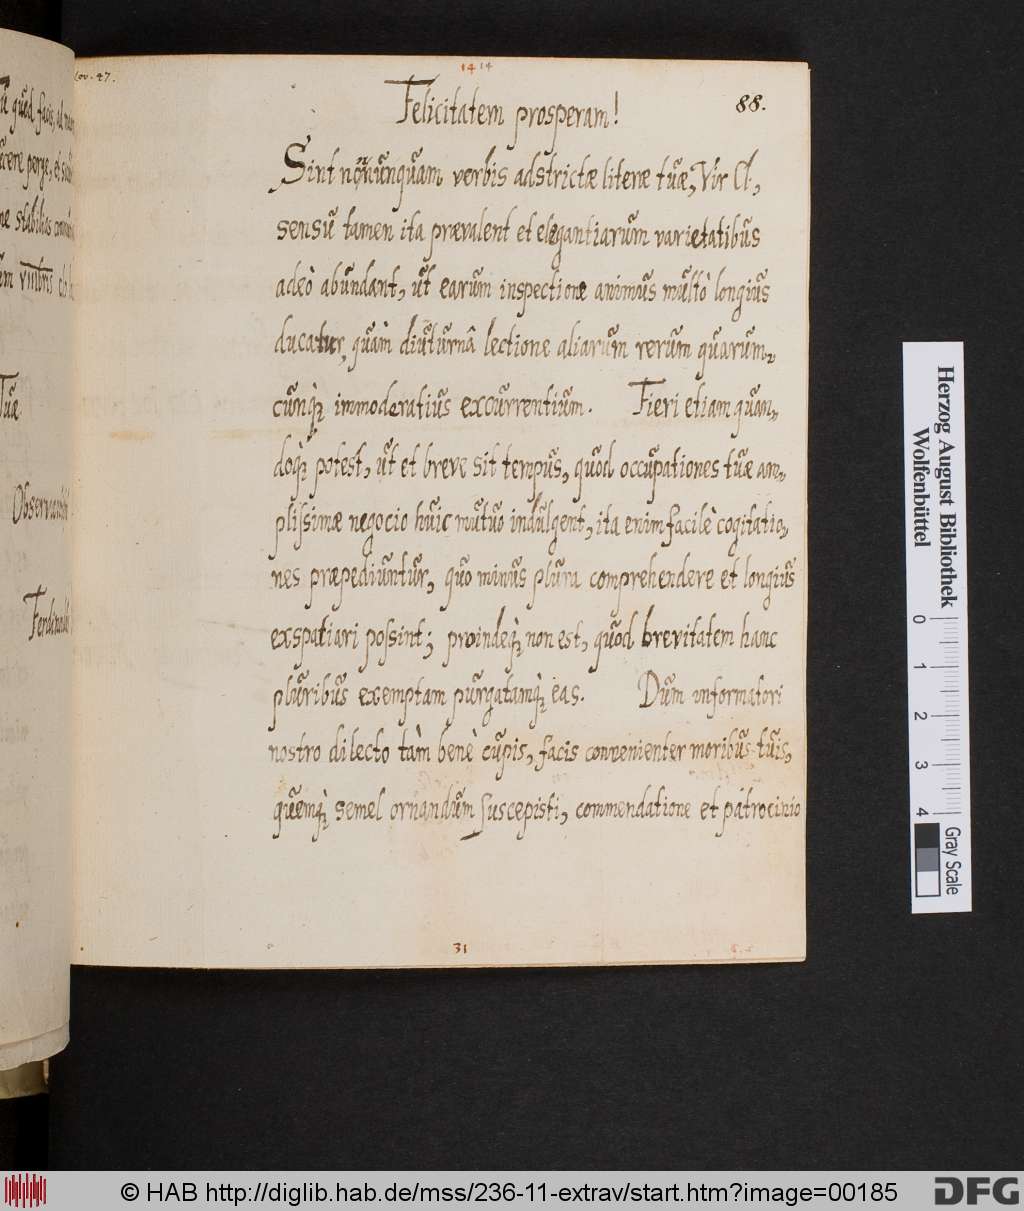 Tuæ
14 14
88.
Felicitatem prosperam!
Sint nonnunquam verbis adstrictæ literæ tuæ, Vir Cl,
sensu tamen ita prævalent et elegantiarum varietatibus
adeò abundant, ut earum inspectione animus multò longius
ducatur, quàm diuturnâ lectione aliarum rerum quarum„
cunq; immoderatius excurrentium. Fieri etiam quan„
doq; potest, ut et breve sit tempus, quod occupationes tuæ am„
plissimæ negocio huic mutuo indulgent, ita enim facilè cogitatio„
nes præpediuntur, quo minus plura comprehendere et longius
exspatiari possint; proindeq; non est, quod brevitatem hanc
pluribus exemptam purgatamq; eas. Dum informatori
nostro dilecto tàm benè cupis, facis convenienter moribus tuis,
quemq; semel ornandum suscepisti, commendatione et patrocinio
31
Herzog August Bibliothek
Wolfenbüttel
0 1 2 3 4
Gray Scale
© HAB http://diglib.hab.de/mss/236-11-extrav/start.htm?image=00185
DFG